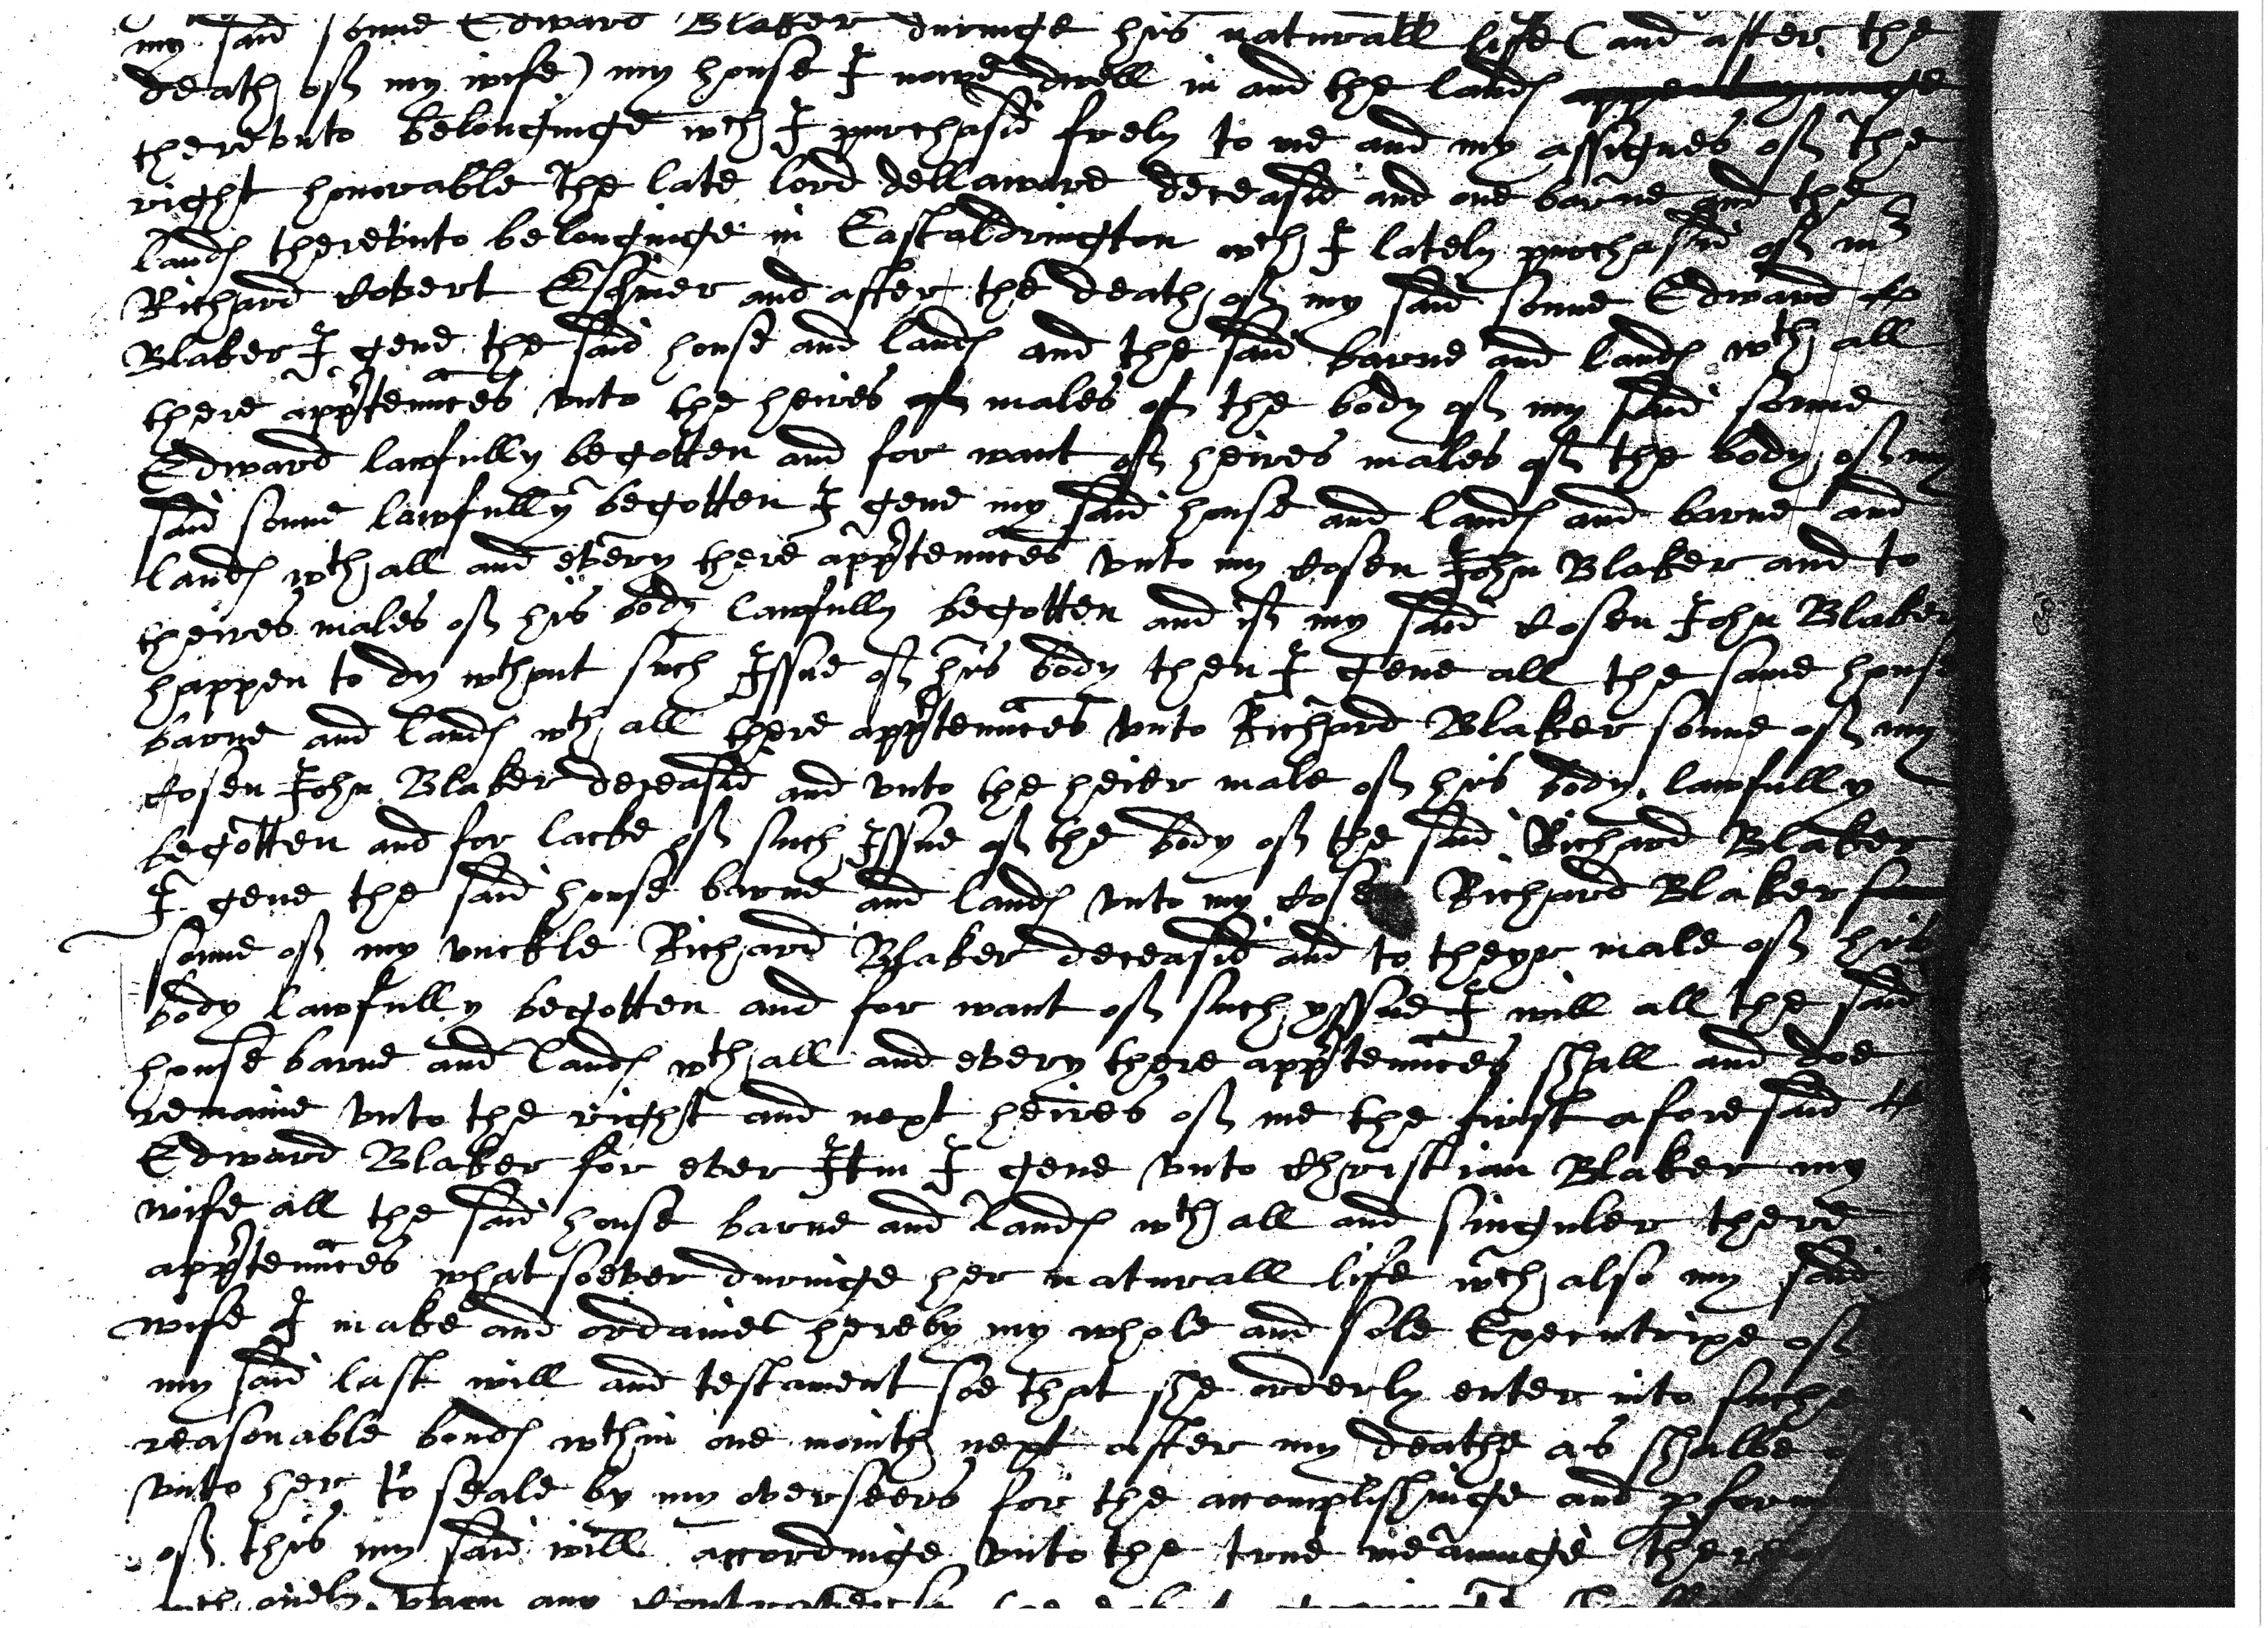 my said sonne Edward Blaker duringe his naturall life (and after the
death of my wife) my house I nowe dwell in and the lands
therevnto belonginge wch I purchasid frely to me and my assignes of the
right honorable the late lord dellaware deceasid and one barne and the
lands therevnto belonginge in Eastaldrington wch I lately purchasid of mr
Richard Covert Esquier and after the death of my said sonne Edward
Blaker I geue the said house and lands and the said barne and lands wth all
there apprtennces vnto the heires males of the body of my said sonne
Edward lawfully begotten and for want of heires males of the body of my
said sonne lawfully begotten I geue my said house and lands and barne and
lands wth all and every there apprtennaces vnto my Cosen John Blaker and to
theires males of his body lawfully begotten and if my said Cosen John Blaker
happen to dy wthout such Issue of his body then I geue all the same house
barne and lands wth all there apprtennaces vnto Richard Blaker sonne of my
Cosen John Blaker deceasid and vnto the heier male of his body lawfully
begotten and for lacke of such Issue of the body of the said Richard Blaker
I geue the said house barne and lands vnto my Cosen Richard Blaker
sonne of my vnckle Richard Blaker deceasid and to theyr male of his
body lawfully begotten and for want of such yssue I will all the said
house barne and lands wth all and every there apprtennaces shall and doe
remaine vnto the right and next heires of me the first aforesaid
Edward Blaker for ever Itm I geue vnto Christian Blaker my
wife all the said house barne and lands wth all and singuler there
apprtennaces whatsoever duringe her naturall life wch also my said
wife I make and ordaine hereby my whole and sole Executrixe of
my said last will and testament soe that she orderly enter into suche
reasonable bonds wthin one mointh next after my deathe as shalbe
vnto her to seale by my overseers for the accomplishinge and pform
of this my said will accordinge vnto the true meaninge ther
any